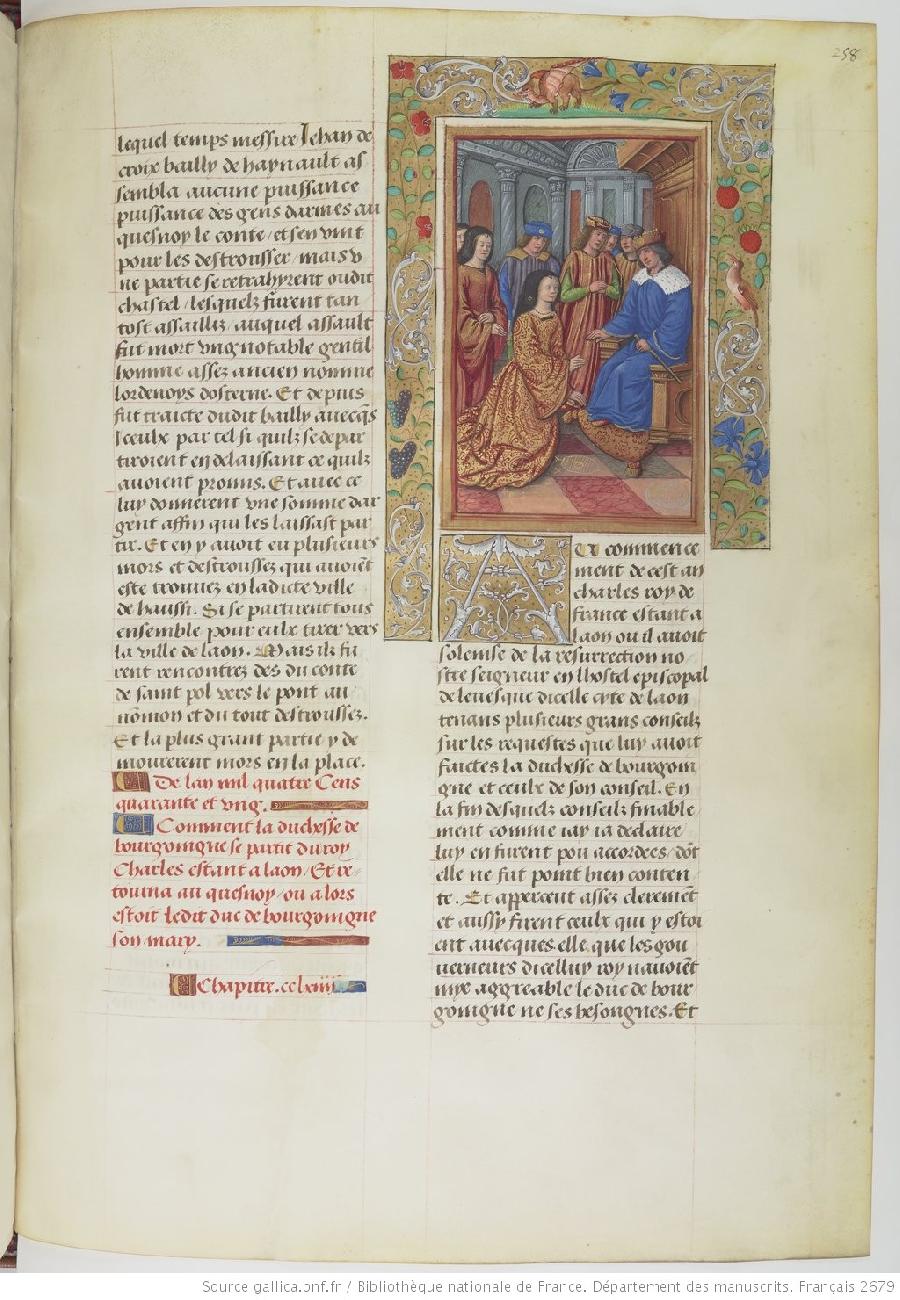 258
lequel temps messire Jehan de
croix bailly de haynault as
sembla aucune puissance
puissance des gens darmes au
quesnoy le conte / et sen vint
pour les destrousser / mais v
ne partie se retrahyrent oudit
chastel / lesquelz furent tan
tost assailliz / auquel assault
fut mort vng notable gentil
homme assez ancien nomme
lordenoys dosterne. Et depuis
fut traicte dudit bailly avecqs
iceulx par tel si quilz se depar
tiroient en delaissant ce quilz
avoient promis. Et avec ce
luy donnerent vne somme dar
gent affin qui les laissast par
tir. Et en y avoit eu plusieurs
mors et destroussez qui avoiēt
este trouuez en ladicte ville
de haussi. Si se partirent tous
ensemble pour eulx tirer vers
la ville de laon. Mais ilz fu
rent rencontrez des du conte
de saint pol vers le pont au
nōmon et du tout destroussez.
Et la plus grant partie y de
mourerent mors en la place.
De lan mil quatre Cens
quarante et vng.
Comment la duchesse de
bourgoingne se partit du roy
Charles estant a laon / Et re
tourna au quesnoy / ou alors
estoit ledit duc de bourgoingne
son mary.
Chapitre. cclxiiii
AU commence
ment de cest an
charles roy de
france estant a
laon ou il avoit
solemse de la resurrection no
stre seigneur en lhostel episcopal
de levesque dicelle cyte de laon
tenans plusieurs grans conseilz
sur les requestes que luy avoit
faictes la duchesse de bourgoin
gne et ceulx de son conseil. En
la fin desquelz conseilz finable
ment comme iay ia declaire /
luy en furent pou accordees / dōt
elle ne fut point bien conten
te. Et apperceut assez cleremēt
et aussy firent ceulx qui y estoi
ent avecques elle que les gou
verneurs dicelluy roy navoiēt
mye aggreable le duc de bour
goingne ne ses besongnes. Et
Source gallica.bnf.fr / Bibliothèque nationale de France. Département des manuscrits. Français 2679